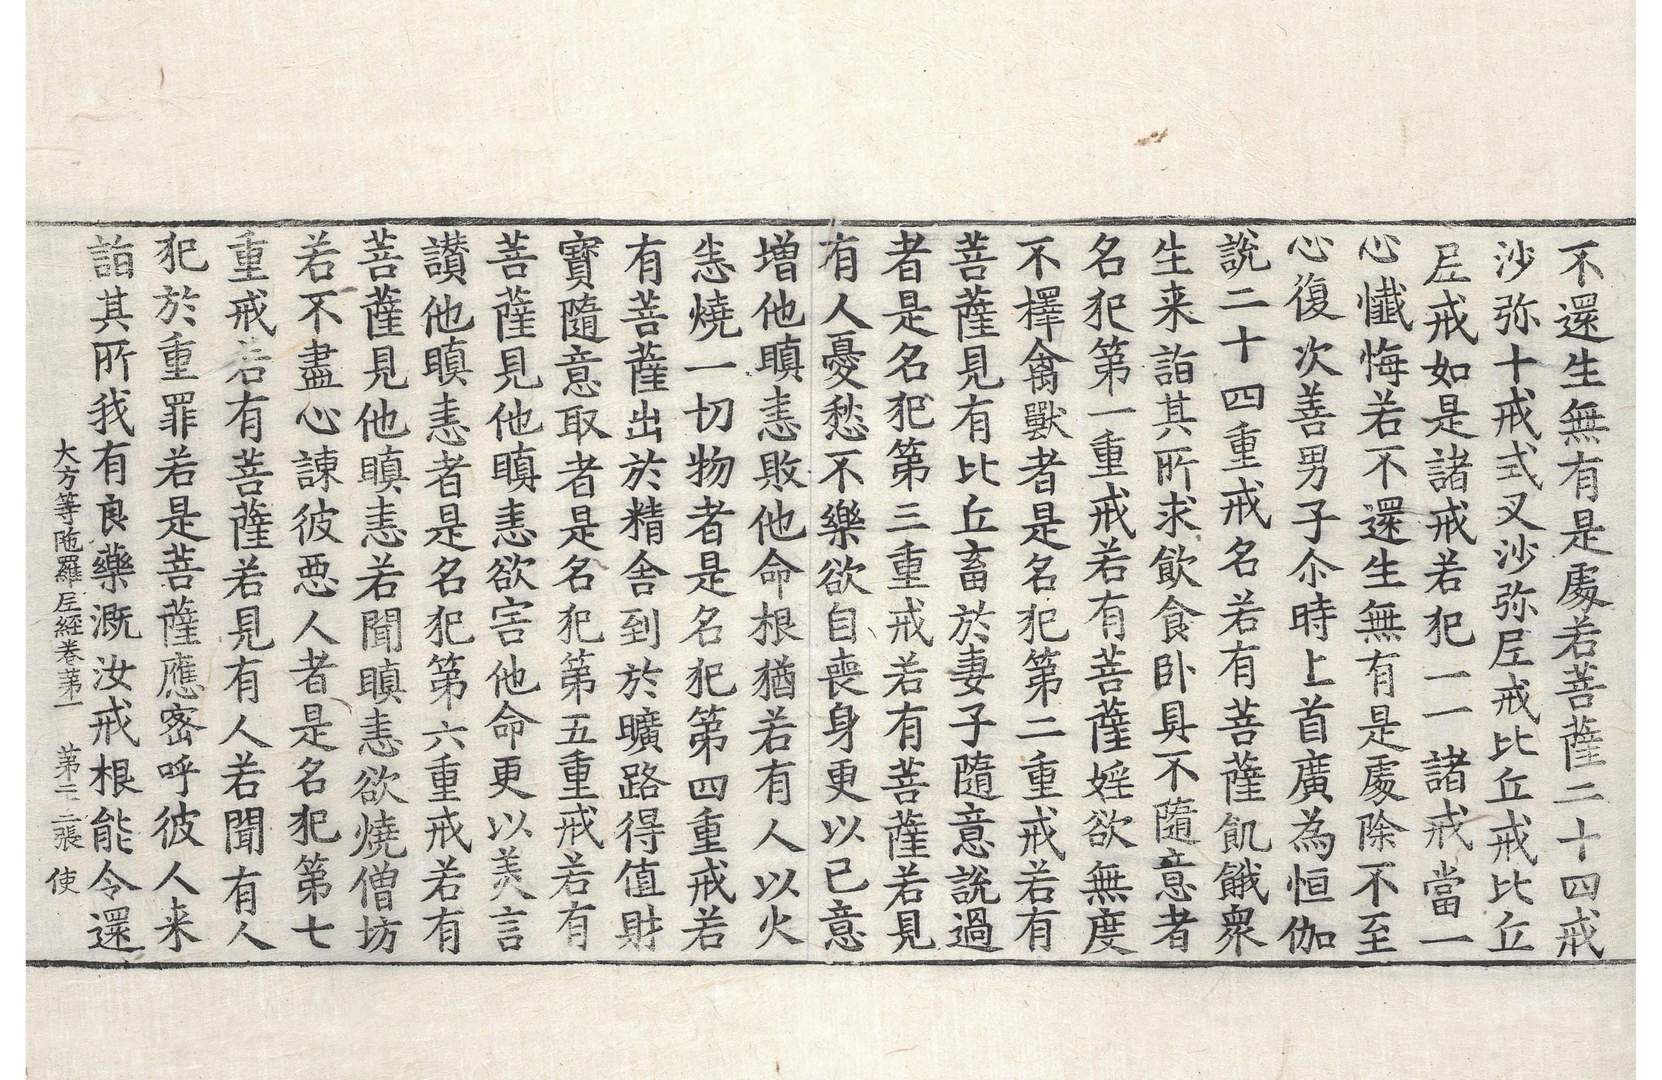 不還生無有是處若菩薩二十四戒
沙弥十戒式叉沙弥𡰱戒比丘戒比丘
𡰱戒如是諸戒若犯一一諸戒當一
心懺悔若不還生無有是處除不至
心復次善男子尒時上首廣為恒伽
說二十四重戒名若有菩薩飢餓衆
生来詣其所求飲食卧具不隨意者
名犯第一重戒若有菩薩婬欲無度
不擇禽獸者是名犯第二重戒若有
菩薩見有比丘畜於妻子隨意說過
者是名犯第三重戒若有菩薩若見
有人憂愁不樂欲自喪身更以己意
増他瞋恚敗他命根猶若有人以火
恚燒一切物者是名犯第四重戒若
有菩薩出於精舍到於曠路得值財
寶隨意取者是名犯第五重戒若有
菩薩見他瞋恚欲害他命更以羙言
讃他瞋恚者是名犯第六重戒若有
菩薩見他瞋恚若聞瞋恚欲燒僧坊
若不盡心諫彼惡人者是名犯第七
重戒若有菩薩若見有人若聞有人
犯於重罪若是菩薩應密呼彼人来
詣其所我有良藥溉汝戒根能令還
大方等陁羅𡰱經卷苐一 苐二二張 使